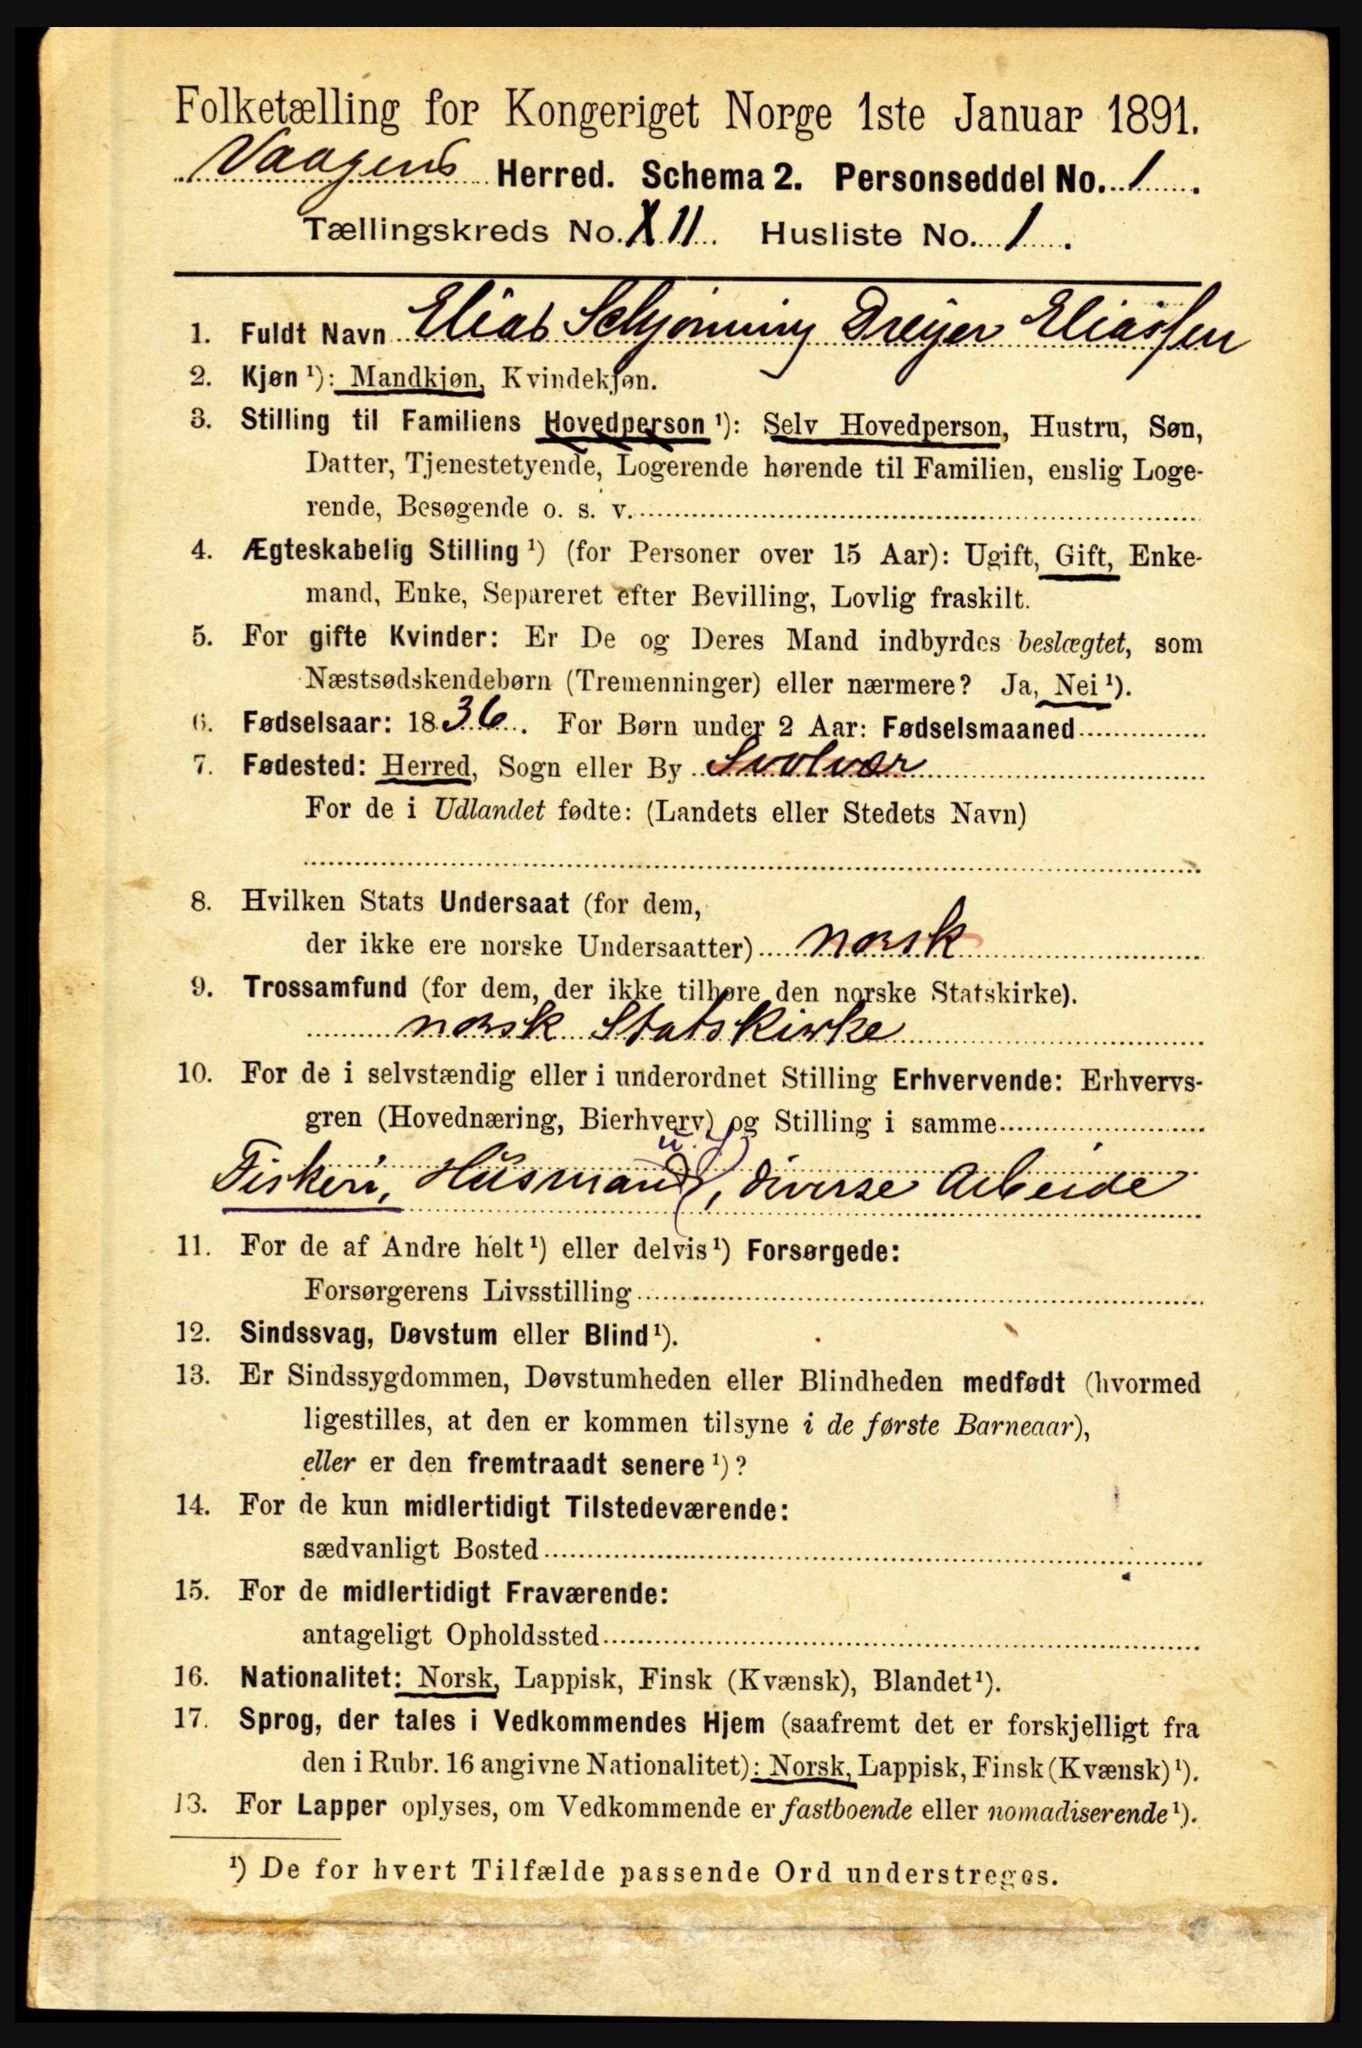 Folketælling for Kongeriget Norge 1ste Januar 1891.
Vaagens Herred. Schema 2. Personseddel No. 1.
Tællingskreds No. XII. Husliste No. 1.
1. Fuldt Navn Elias Schjønning Dreyer Eliassen
2. Kjøn ¹): Mandkjøn, Kvindekjøn.
3. Stilling til Familiens Hovedperson ¹): Selv Hovedperson, Hustru, Søn,
Datter, Tjenestetyende, Logerende hørende til Familien, enslig Loge-
rende, Besøgende o. s. v.
4. Ægteskabelig Stilling ¹) (for Personer over 15 Aar): Ugift, Gift, Enke-
mand, Enke, Separeret efter Bevilling, Lovlig fraskilt.
5. For gifte Kvinder: Er De og Deres Mand indbyrdes beslægtet, som
Næstsødskendebørn (Tremenninger) eller nærmere? Ja, Nei ¹).
6. Fødselsaar: 1836. For Børn under 2 Aar: Fødselsmaaned
7. Fødested: Herred, Sogn eller By Svolvær
For de i Udlandet fødte: (Landets eller Stedets Navn)
8. Hvilken Stats Undersaat (for dem,
der ikke ere norske Undersaatter) norsk
9. Trossamfund (for dem, der ikke tilhøre den norske Statskirke).
norsk Statskirke
10. For de i selvstændig eller i underordnet Stilling Erhvervende: Erhvervs-
gren (Hovednæring, Bierhverv) og Stilling i samme
Fiskeri, Husmand, diverse Arbeide
11. For de af Andre helt ¹) eller delvis ¹) Forsørgede:
Forsørgerens Livsstilling
12. Sindssvag, Døvstum eller Blind ¹).
13. Er Sindssygdommen, Døvstumheden eller Blindheden medfødt (hvormed
ligestilles, at den er kommen tilsyne i de første Barneaar),
eller er den fremtraadt senere ¹)?
14. For de kun midlertidigt Tilstedeværende:
sædvanligt Bosted
15. For de midlertidigt Fraværende:
antageligt Opholdssted
16. Nationalitet: Norsk, Lappisk, Finsk (Kvænsk), Blandet ¹).
17. Sprog, der tales i Vedkommendes Hjem (saafremt det er forskjelligt fra
den i Rubr. 16 angivne Nationalitet): Norsk, Lappisk, Finsk (Kvænsk) ¹).
13. For Lapper oplyses, om Vedkommende er fastboende eller nomadiserende ¹).
¹) De for hvert Tilfælde passende Ord understreges.